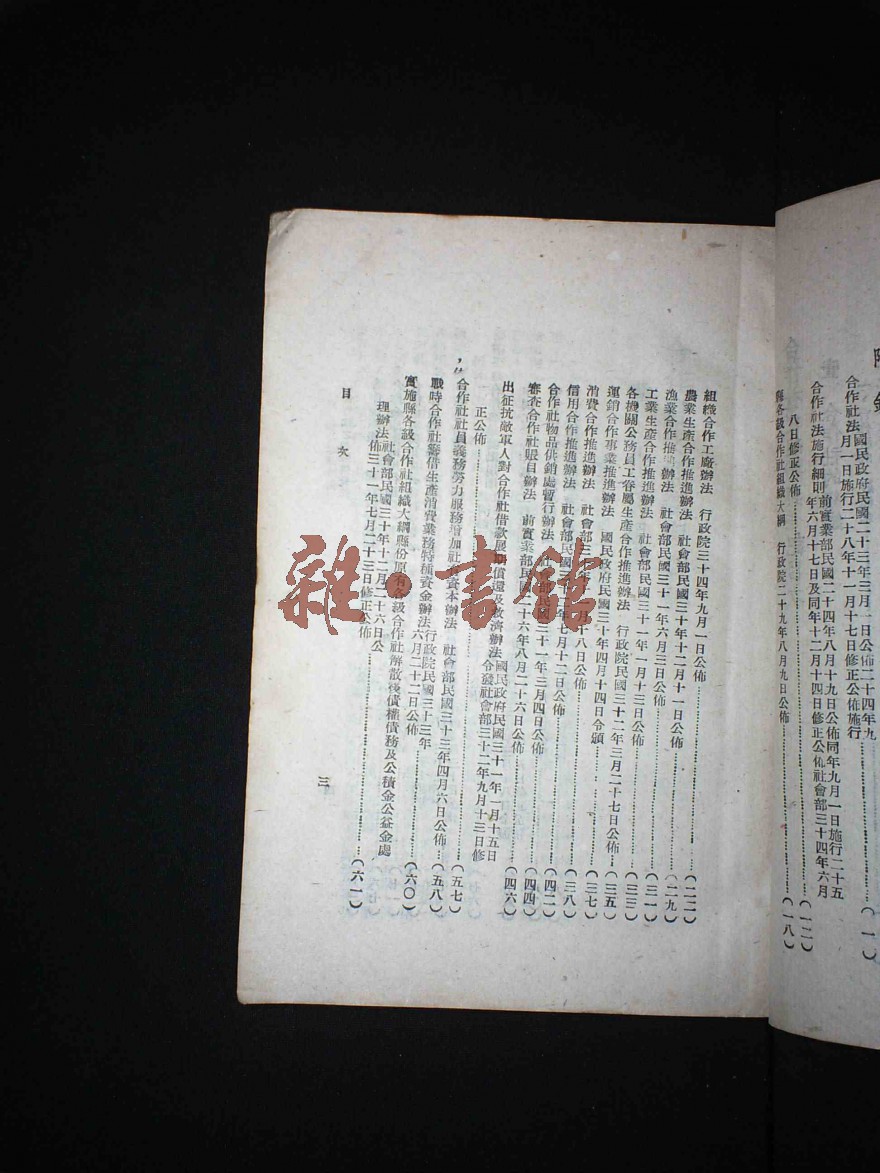 附錄
合作社法 國民政府民國二十三年三月一日公佈二十四年九
月一日施行二十八年十一月十七日修正公佈施行……(一)
合作社法施行細則 前實業部民國二十四年八月十九日公佈同年九月一日施行二十五
年六月十七日及同年十二月十四日修正公佈社會部三十四年六月
八日修正公佈……(一二)
縣各級合作社組織大綱 行政院二十九年八月九日公佈……(一八)
組織合作工廠辦法 行政院三十四年九月一日公佈……(二二)
農業生產合作推進辦法 社會部民國三十年十二月十一日公佈……(二九)
漁業合作推進辦法 社會部民國三十一年六月三日公佈……(三一)
工業生產合作推進辦法 社會部民國三十一年一月十三日公佈……(三三)
各機關公務員工眷屬生產合作推進辦法 行政院民國三十二年三月二十七日公佈……(三五)
運銷合作事業推進辦法 國民政府民國三十年四月十四日令頒……(三七)
消費合作推進辦法 社會部三十 月十八日公佈……(三八)
信用合作推進辦法 社會部民國三十二年七月十二日公佈……(四二)
合作社物品供銷處暫行辦法 社會部民國三十一年三月四日公佈……(四四)
審查合作社賬目辦法 前實業部民國二十六年八月二十六日公佈……(四六)
出征抗敵軍人對合作社借款展期償還及救濟辦法 國民政府民國三十一年一月十五日
令發社會部三十二年九月十三日修
正公佈……(五七)
合作社社員義務勞力服務增加社有資本辦法 社會部民國三十三年四月六日公佈……(五八)
戰時合作社籌借生產消費業務特種資金辦法 行政院民國三十三年
六月二十二日公佈……(六〇)
實施縣各級合作社組織大綱縣份原有各級合作社解散後債權債務及公積金公益金處
理辦法 社會部民國三十年十二月二十六日公
佈三十一年七月二十三日修正公佈……(六一)
目次
三
雜·書館